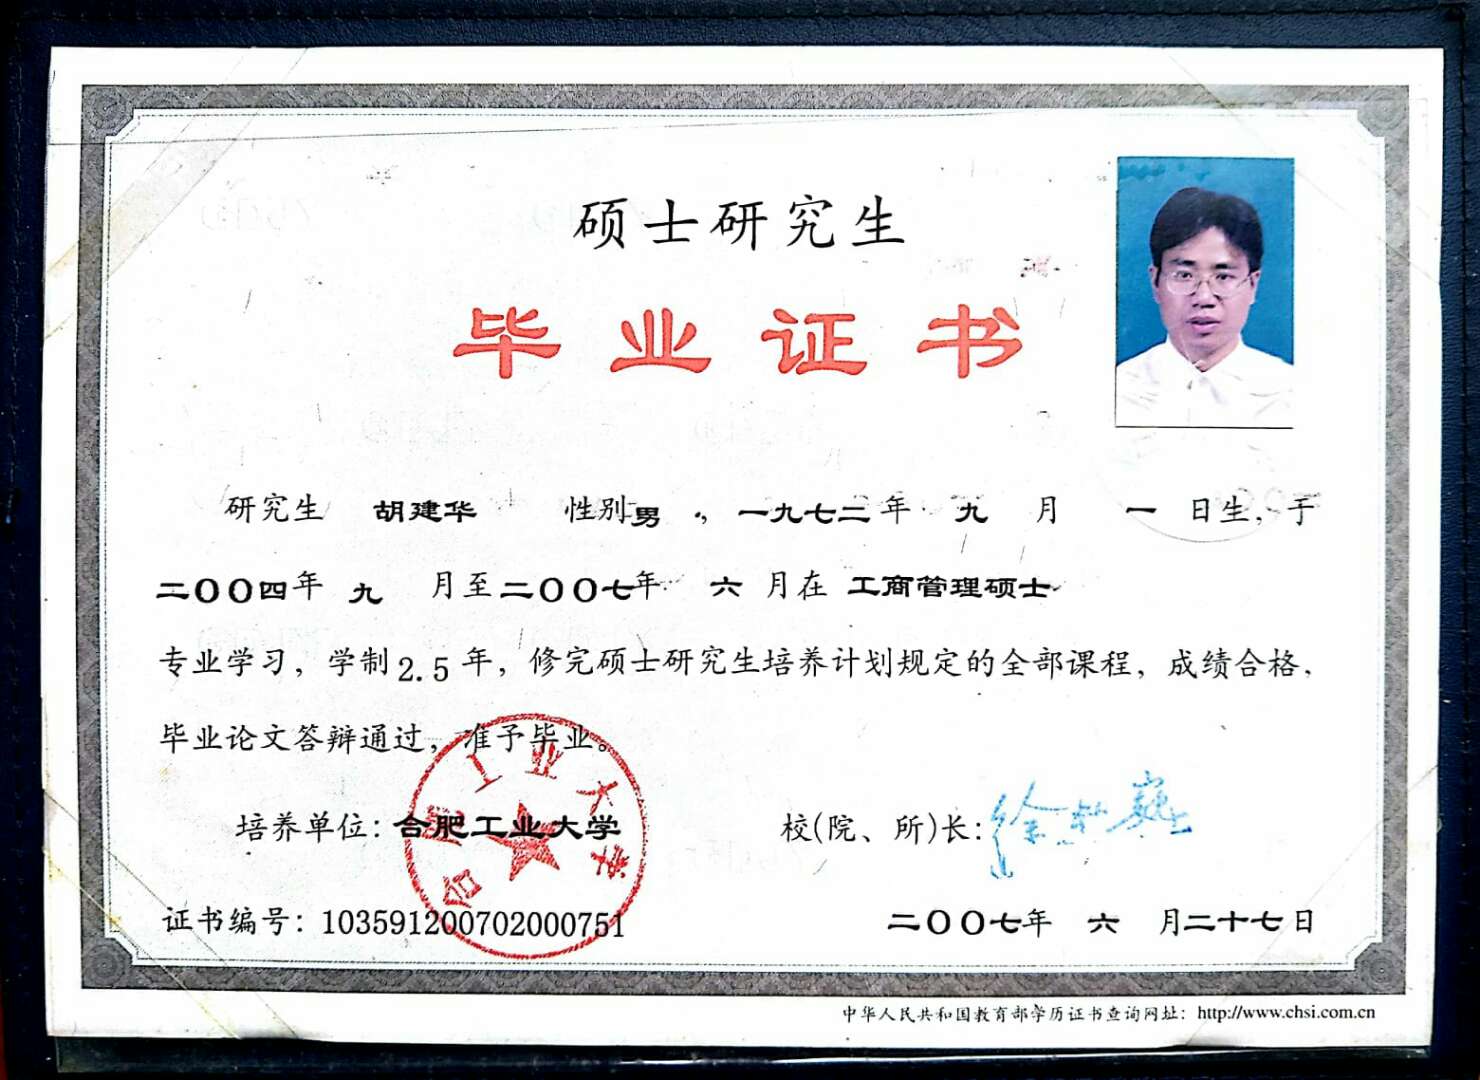 硕士研究生
毕业证书
研究生 胡建华 性别男 ，一九七二年 九 月 一 日生，于
二〇〇四年 九 月至二〇〇七年 六 月在 工商管理硕士
专业学习，学制2.5年，修完硕士研究生培养计划规定的全部课程，成绩合格，
毕业论文答辩通过，准予毕业。
合肥工业大学
培养单位：合肥工业大学 校(院、所)长：
证书编号：103591200702000751 二〇〇七年 六 月二十七日
中华人民共和国教育部学历证书查询网址：http://www.chsi.com.cn